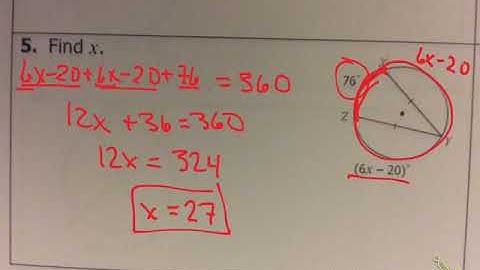 5. Find x.
6x-20+6x-20+76 = 360
12x +36=360
12x = 324
x = 27
6x-20
X
76°
Z
Y
(6x – 20)°